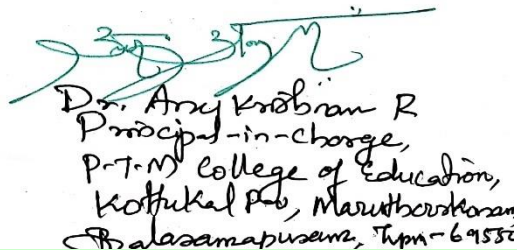 Dr. Any Krishnan R
Principal-in-charge,
P.T.M College of Education,
Kottukal P.O, Maruthoorkonam,
Balaramapuram, Tvpm-69550